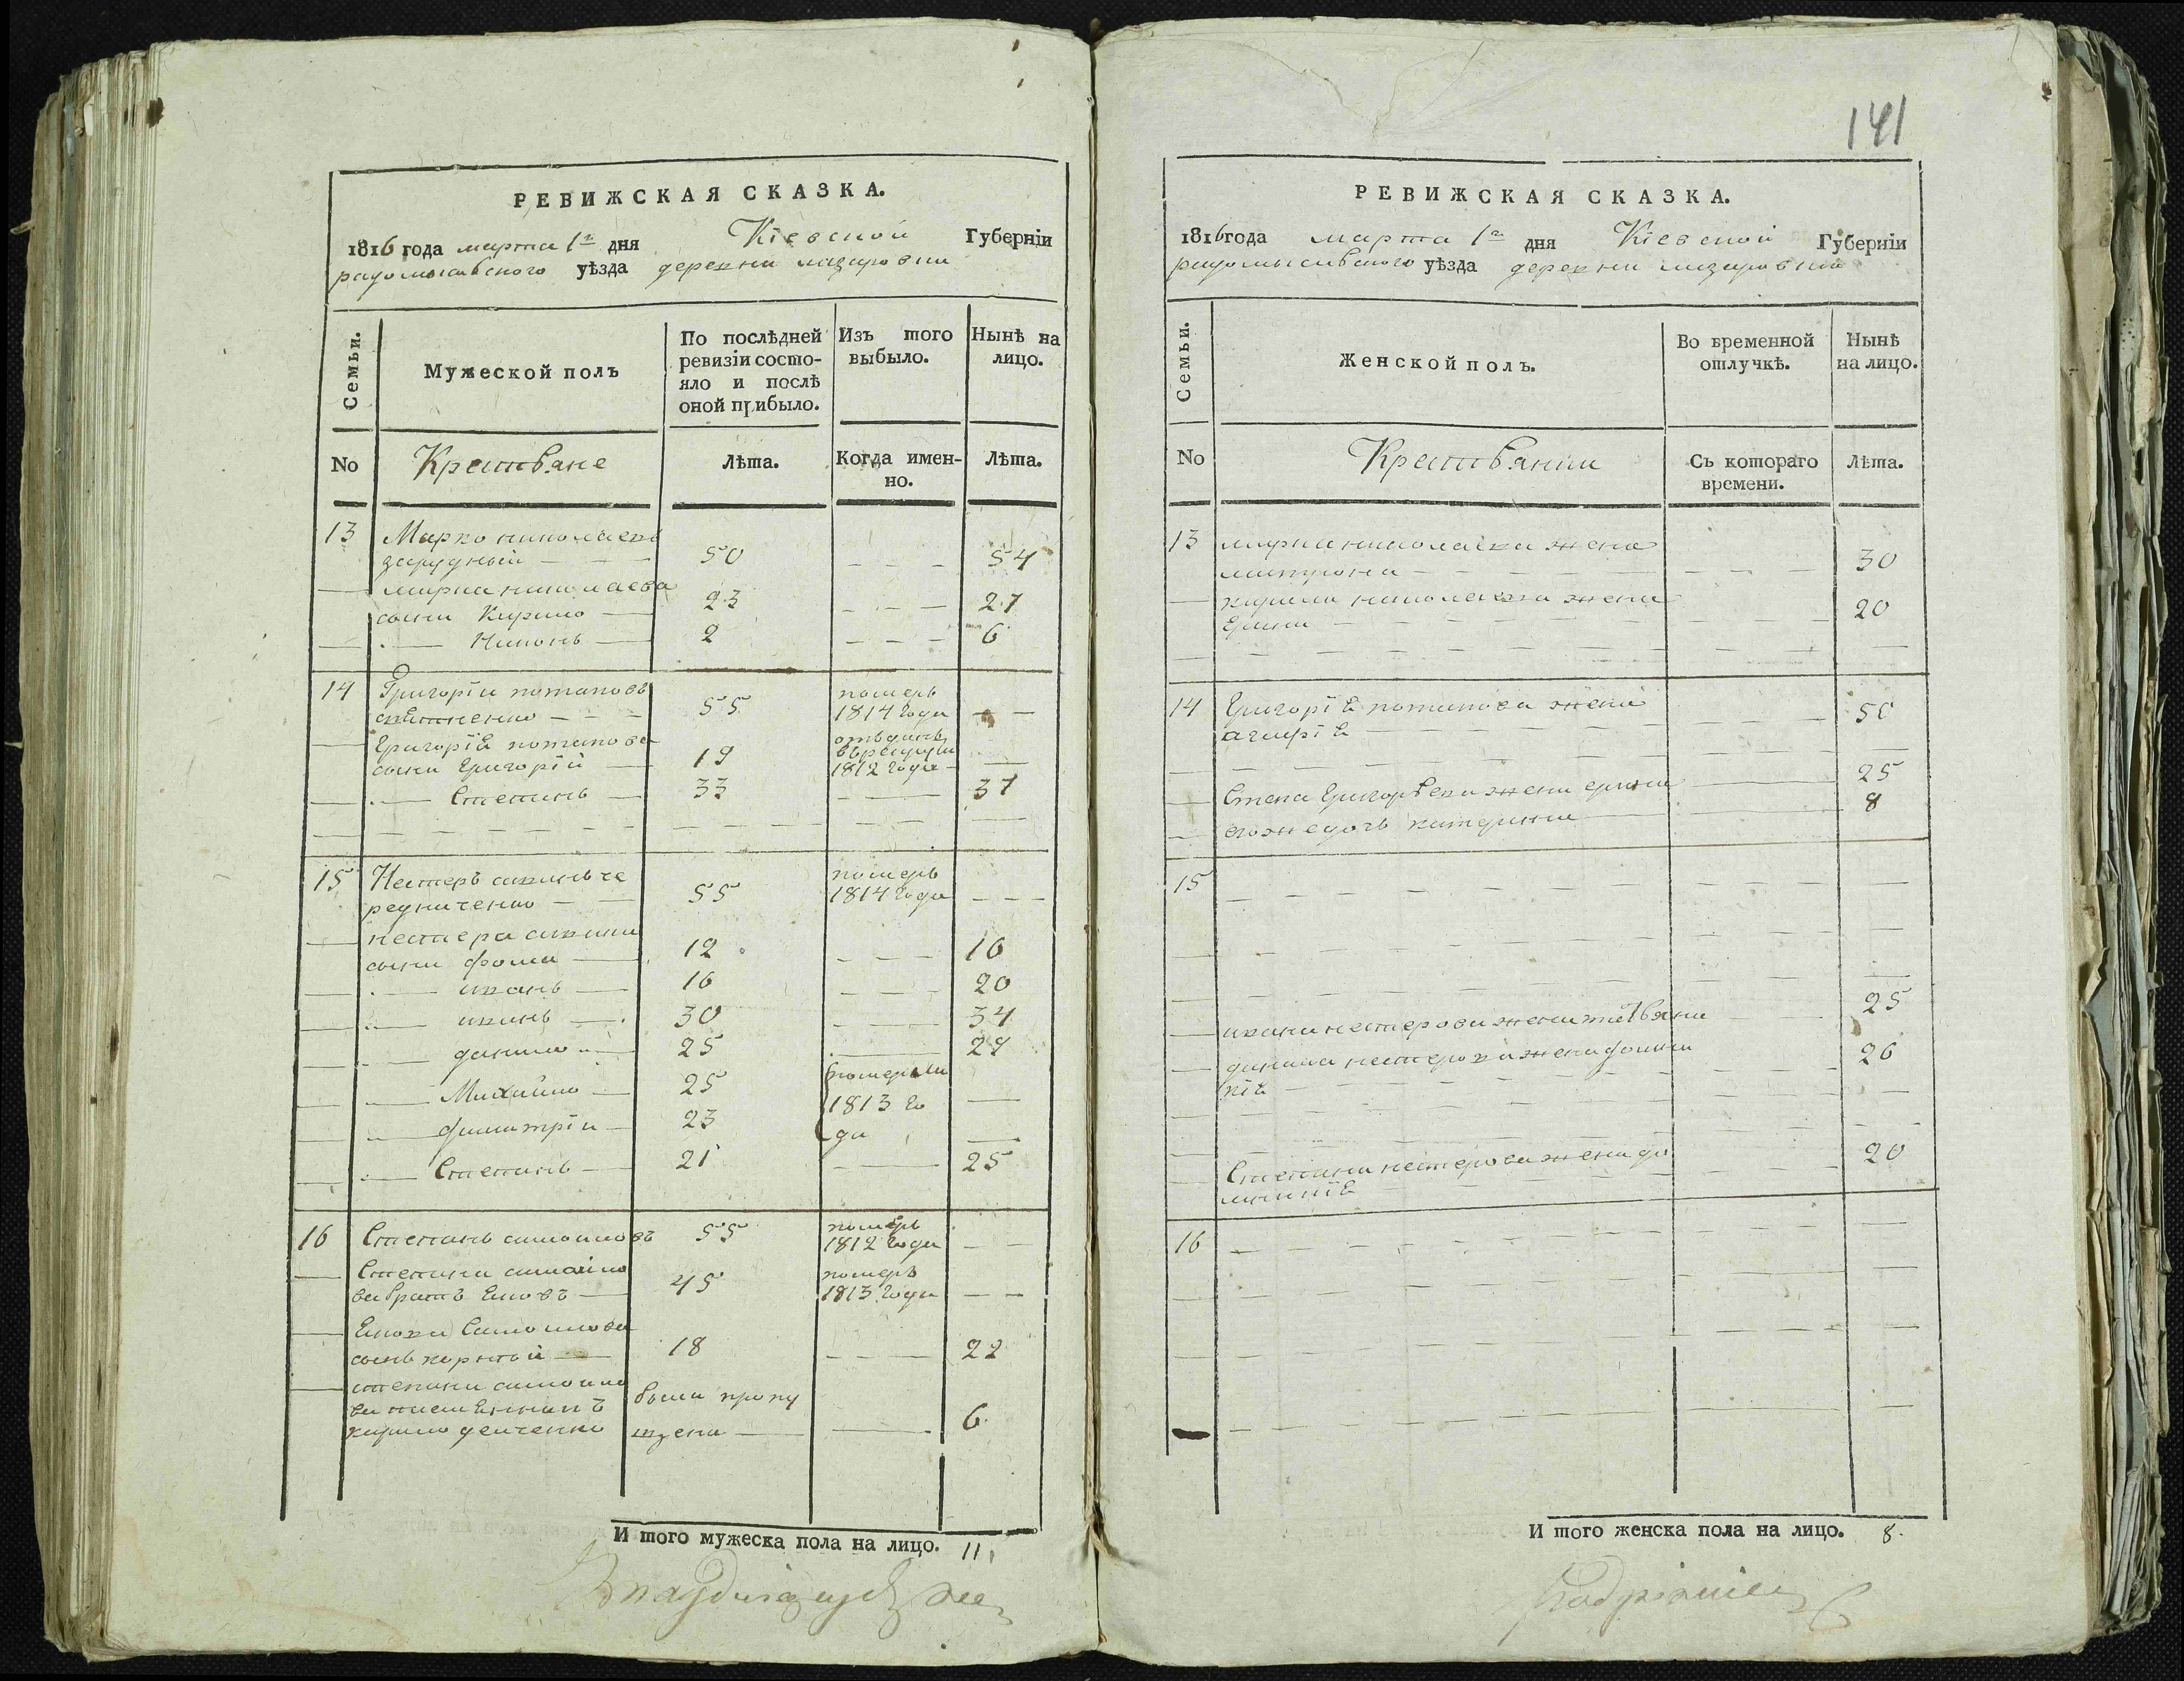 РЕВИЖСКАЯ СКАЗКА.
1816 года марта 1го дня Кіевской Губерніи
радомысльского уѣзда деревни
Семьи.
Мужеской полъ
По послѣдней ревизіи состо-
яло и послѣ оной прибыло.
Изъ того выбыло.
Нынѣ на лицо.
No
Крестьяне
Лѣта.
Когда имен-
но.
Лѣта.
13 Марко николаевъ
зарудный 50 54
марка николаева
сыни Кирило 23 27
Никонъ 2 6
14 Григорій потаповъ
55 померъ 1814 года
Григорія потапова
сыни Григорій 19
1812 года
Степанъ 33 37
15 Нестеръ
55 померъ 1814 года
нестера
сыни фома 12 16
иванъ 16 20
иванъ 30 34
данило 25 29
Михайло 25 померли
1813 го
димитрій 23 да
Степанъ 21 25
16 Степанъ самойловъ 55 померъ
1812 года
Степана самойло
ва братъ 45 померъ
1813 года
Самойлова
сынъ корней 18 22
степана самойло
ва племѣнникъ были пропу
кирило щена 6
И того мужеска пола на лицо. 11
141
РЕВИЖСКАЯ СКАЗКА.
1816 года марта 1го дня Кіевской Губерніи
радомысльского уѣзда деревни
Семьи.
Женской полъ.
Во временной отлучкѣ.
Нынѣ на лицо.
No
Крестьянки
Съ котораго времени.
Лѣта.
13 марка николаева жена
матрона 30
кирила николаева жена
20
14 Григорія потапова жена
агафія 50
Степа Григорьева жена 25
его же дочь катерина 8
15
ивана нестерова жена татьяна 25
данила нестерова жена 26
Степана нестерова жена до 20
мникія
16
И того женска пола на лицо. 8.